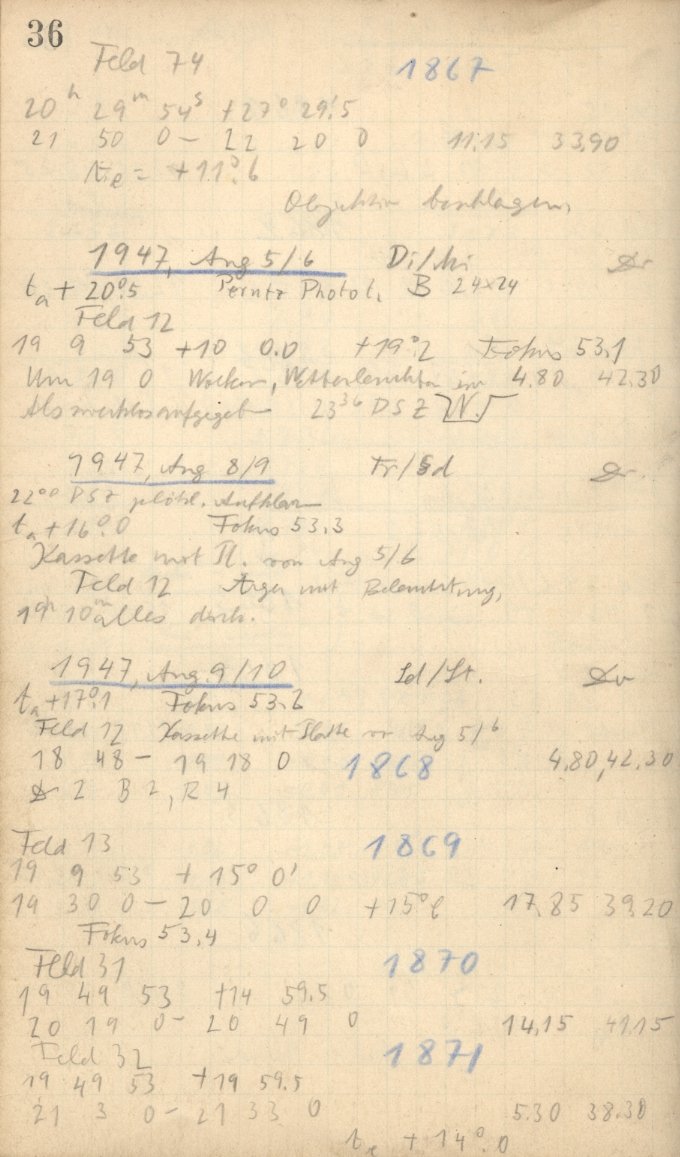 36
Feld 74 1867
20h 29m 54s +27° 29!5
21 50 0 – 22 20 0 11,15 33,90
te = +11°,6
Objektiv beschlagen,
1947, Aug 5/6 Di/Mi Dr
ta + 20°,5 Perutz Photot. B 24x24
Feld 12
19 9 53 +10 0.0 +19°,2 Fokus 53,1
Um 19 0 Wolken, Wetterleuchten im 4.80 42.30
Als wertlos aufgegeben 2336 DSZ
1947, Aug 8/9 Fr/Sd Dr.
2200 DSZ plötzl. Aufklaren
ta +16°,0 Fokus 53,3
Kassette mit Pl. von Aug 5/6
Feld 12 Ärger mit Beleuchtung,
19h 10m alles dick.
1947, Aug. 9/10 Sd/St. Dr
ta +17°,1 Fokus 53,2
Feld 12 Kassette mit Platte von Aug 5/6
18 48 – 19 18 0 1868 4.80, 42.30
2 B 2, R 4
Feld 13 1869
19 9 53 +15° 0'
19 30 0 – 20 0 0 +15° 17,85 39,20
Fokus 53,4
Feld 31 1870
19 49 53 +14 59.5
20 19 0 – 20 49 0 14,15 41,15
Feld 32 1871
19 49 53 +19 59.5
21 3 0 – 21 33 0 5.30 38.30
te +14°,0